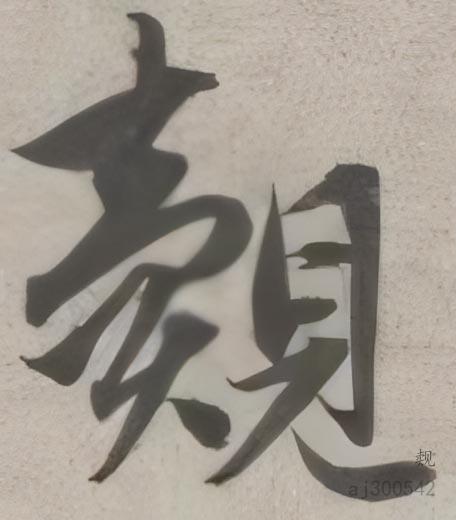 覿
觌
aj300542